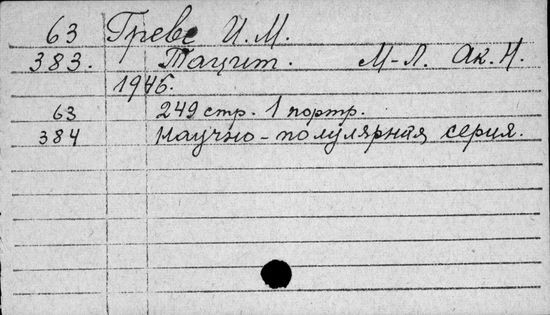 63 Гревс И.М.
383. Тацит. М-Л. Ак.Н.
1946.
63 249 стр. 1 портр.
384 Научно-популярная серия.